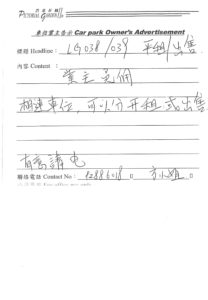 PICTORIAL GARDEN
車位業主告示 Car park Owner's Advertisement
標題 Headline: LG038/039 平租/出售
內容 Content:
業主免佣
相連車位，可以分开租或出售
有意請电
聯絡電話 Contact No: 方小姐